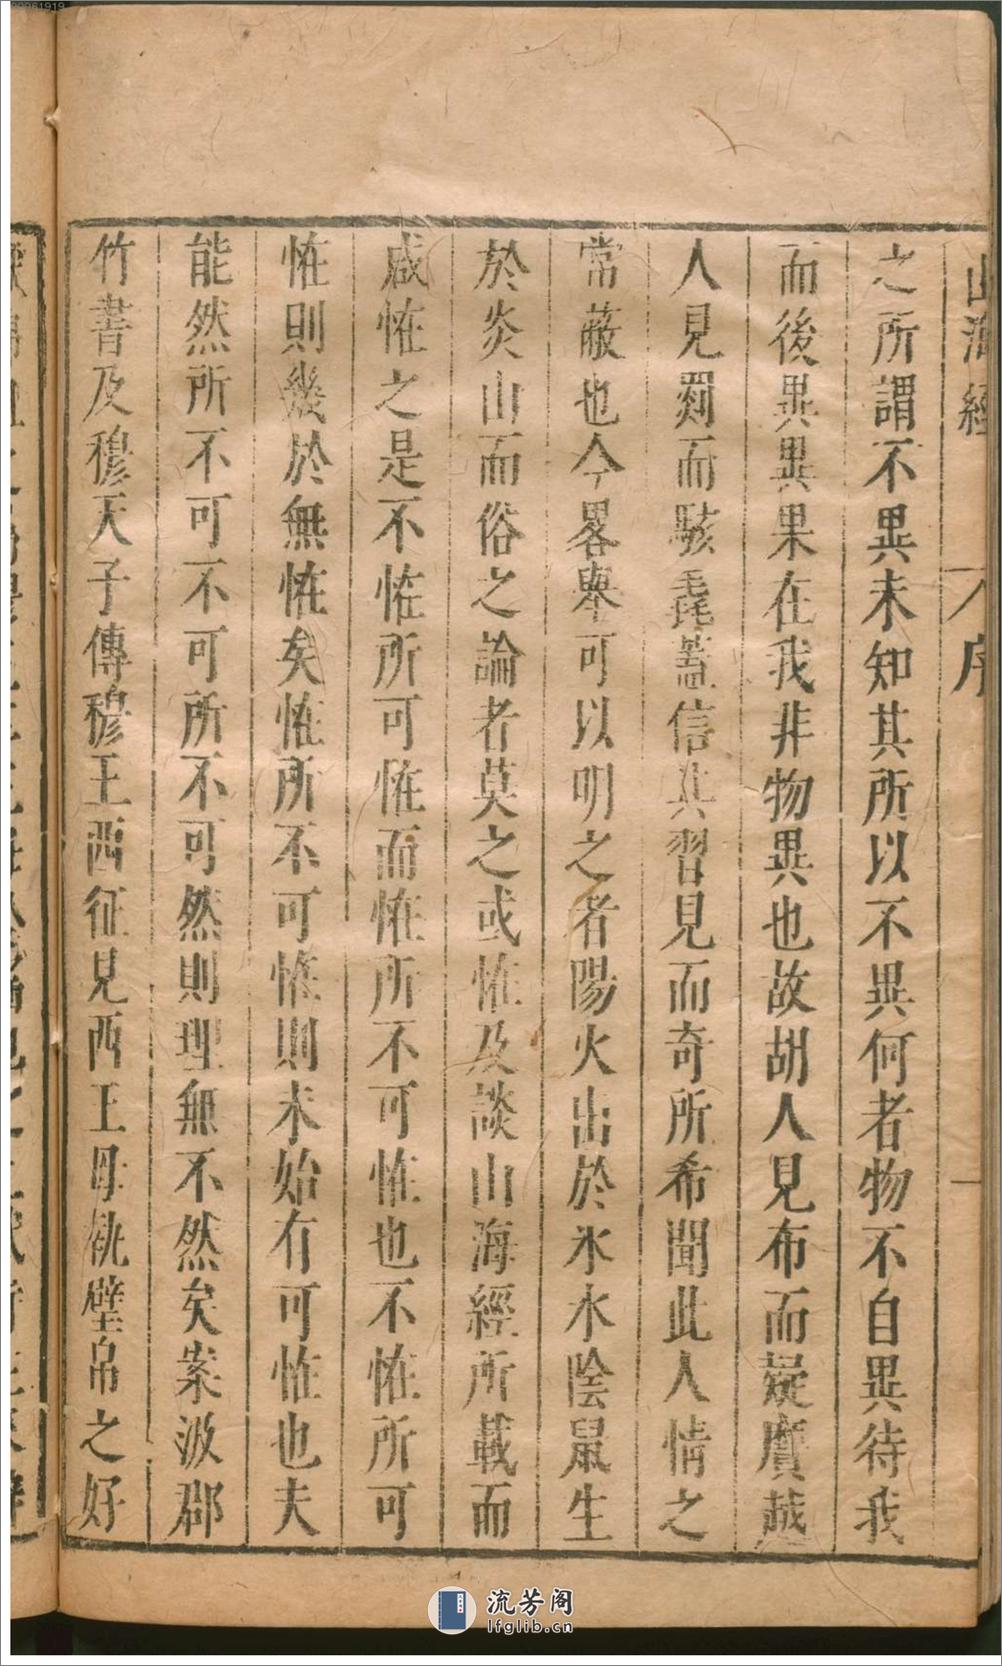 山海經 序 一
之所謂不異未知其所以不異何者物不自異待我
而後異異果在我非物異也故胡人見布而疑黂越
人見罽而駭毳蓋信其習見而奇所希聞此人情之
常蔽也今畧舉可以明之者陽火出於氷水陰鼠生
於炎山而俗之論者莫之或恠及談山海經所載而
咸恠之是不恠所可恠而恠所不可恠也不恠所可
恠則幾於無恠矣恠所不可恠則未始有可恠也夫
能然所不可不可所不可然則理無不然矣案汲郡
竹書及穆天子傳穆王西征見西王母執璧帛之好
流芳阁
lfglib.cn